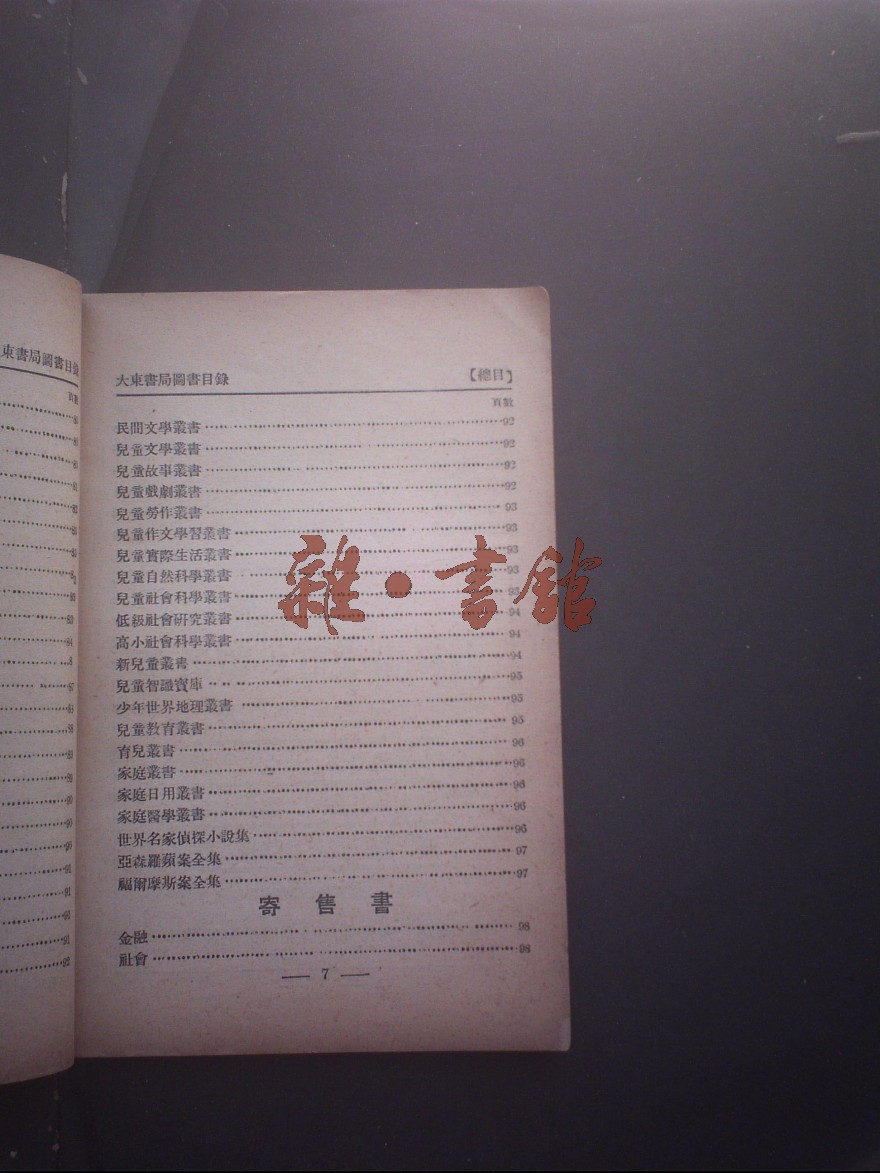 東書局圖書目錄
大東書局圖書目錄 【總目】
頁數
民間文學叢書 92
兒童文學叢書 92
兒童故事叢書 92
兒童戲劇叢書 92
兒童勞作叢書 93
兒童作文學習叢書 93
兒童實際生活叢書 93
兒童自然科學叢書 93
兒童社會科學叢書 93
低級社會研究叢書 94
高小社會科學叢書 94
新兒童叢書 94
兒童智識寶庫 95
少年世界地理叢書 95
兒童教育叢書 95
育兒叢書 96
家庭叢書 96
家庭日用叢書 96
家庭醫學叢書 96
世界名家偵探小說集 96
亞森羅蘋案全集 97
福爾摩斯案全集 97
寄售書
金融 98
社會 98
— 7 —
雜·書館